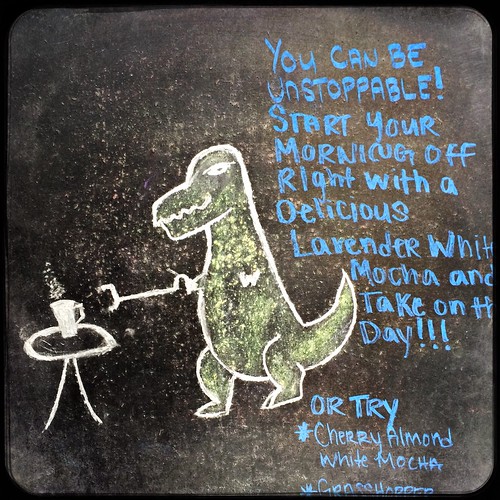 You CAN BE
UNSTOPPABLE!
START YOUR
MORNICUG OFF
Right with a
Delicious
Lavender Whit
Mocha and
Take on th
Day!!!
OR TRY
*Cherry Almond
White Mocha
*GRASSHOPPER